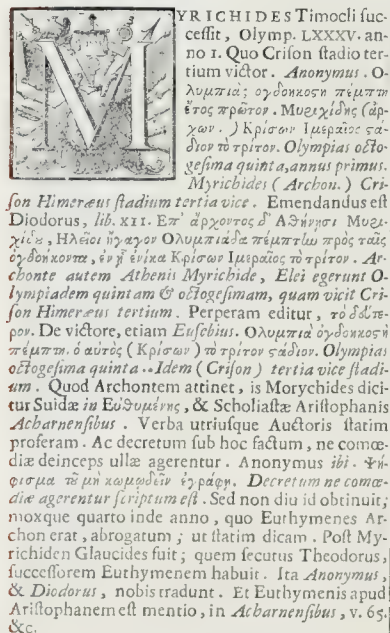 MYRICHIDES Timocli suc-
cessit, Olymp. LXXXV. an-
no 1. Quo Crison stadio ter-
tium victor. Anonymus. Ο-
λυμπιὰς ὀγδοηκοςὴ πέμπτη
ἔτος πρῶτον. Μυριχίδης (ἄρ-
χων.) Κρίσων Ιμεραῖος ςά-
διον τὸ τρίτον. Olympias octo-
gesima quinta, annus primus.
Myrichides (Archon.) Cri-
son Himeræus stadium tertia vice. Emendandus est
Diodorus, lib. XII. Επ' ἄρχοντος δ' Αθήνησι Μυρι-
χίδȣ, Ηλεῖοι ἤγαγον Ολυμπιάδα πέμπτην πρὸς ταῖς
ὀγδοήκοντα, ἐν ᾗ ἐνίκα Κρίσων Ιμεραῖος τὸ τρίτον. Ar-
chonte autem Athenis Myrichide, Elei egerunt O-
lympiadem quintam & octogesimam, quam vicit Cri-
son Himeræus tertium. Perperam editur, τὸ δεύτε-
ρον. De victore, etiam Eusebius. Ολυμπιὰ ὀγδοηκοςὴ
πέμπτη. ὁ αὐτὸς (Κρίσων) τὸ τρίτον ςάδιον. Olympias
octogesima quinta.. Idem (Crison) tertia vice stadi-
um. Quod Archontem attinet, is Morychides dici-
tur Suidæ in Εὐθυμένης, & Scholiastæ Aristophanis
Acharnensibus. Verba utriusque Auctoris statim
proferam. Ac decretum sub hoc factum, ne comœ-
diæ deinceps ullæ agerentur. Anonymus ibi. Ψή-
φισμα τȣ͂ μὴ κωμῳδεῖν ἐγράφη. Decretum ne comœ-
diæ agerentur scriptum est. Sed non diu id obtinuit;
moxque quarto inde anno, quo Euthymenes Ar-
chon erat, abrogatum; ut statim dicam. Post My-
richiden Glaucides fuit; quem secutus Theodorus,
successorem Euthymenem habuit. Ita Anonymus,
& Diodorus, nobis tradunt. Et Euthymenis apud
Aristophanem est mentio, in Acharnensibus, v. 65.
&c.